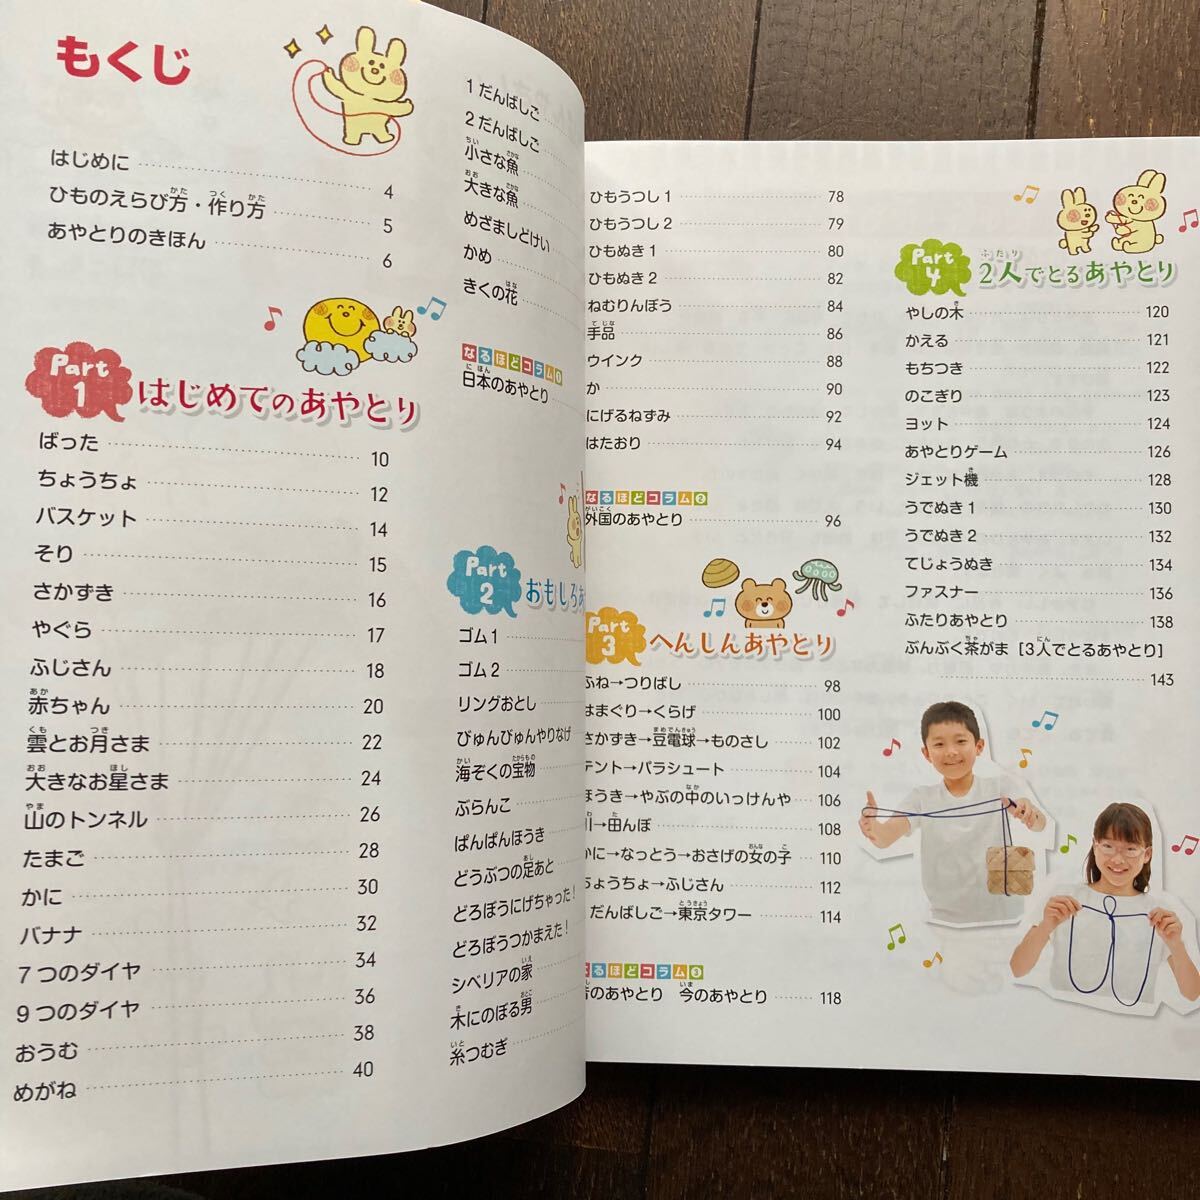 もくじ
はじめに 4
ひものえらび方・作り方 5
あやとりのきほん 6
Part 1 はじめてのあやとり
ばった 10
ちょうちょ 12
バスケット 14
そり 15
さかずき 16
やぐら 17
ふじさん 18
赤ちゃん 20
雲とお月さま 22
大きなお星さま 24
山のトンネル 26
たまご 28
かに 30
バナナ 32
7つのダイヤ 34
9つのダイヤ 36
おうむ 38
めがね 40
1だんばしご
2だんばしご
小さな魚
大きな魚
めざましどけい
かめ
きくの花
なるほどコラム1
日本のあやとり
Part 2 おもしろあ
ゴム1
ゴム2
リングおとし
びゅんびゅんやりなげ
海ぞくの宝物
ぶらんこ
ぱんぱんほうき
どうぶつの足あと
どろぼうにげちゃった!
どろぼうつかまえた!
シベリアの家
木にのぼる男
糸つむぎ
ひもうつし1 78
ひもうつし2 79
ひもぬき1 80
ひもぬき2 82
ねむりんぼう 84
手品 86
ウインク 88
か 90
にげるねずみ 92
はたおり 94
なるほどコラム2
外国のあやとり 96
Part 3 へんしんあやとり
ふね→つりばし 98
はまぐり→くらげ 100
さかずき→豆電球→ものさし 102
テント→パラシュート 104
ほうき→やぶの中のいっけんや 106
川→田んぼ 108
かに→なっとう→おさげの女の子 110
ちょうちょ→ふじさん 112
だんばしご→東京タワー 114
なるほどコラム3
のあやとり 今のあやとり 118
Part 4 2人でとるあやとり
やしの木 120
かえる 121
もちつき 122
のこぎり 123
ヨット 124
あやとりゲーム 126
ジェット機 128
うでぬき1 130
うでぬき2 132
てじょうぬき 134
ファスナー 136
ふたりあやとり 138
ぶんぶく茶がま [3人でとるあやとり]
143